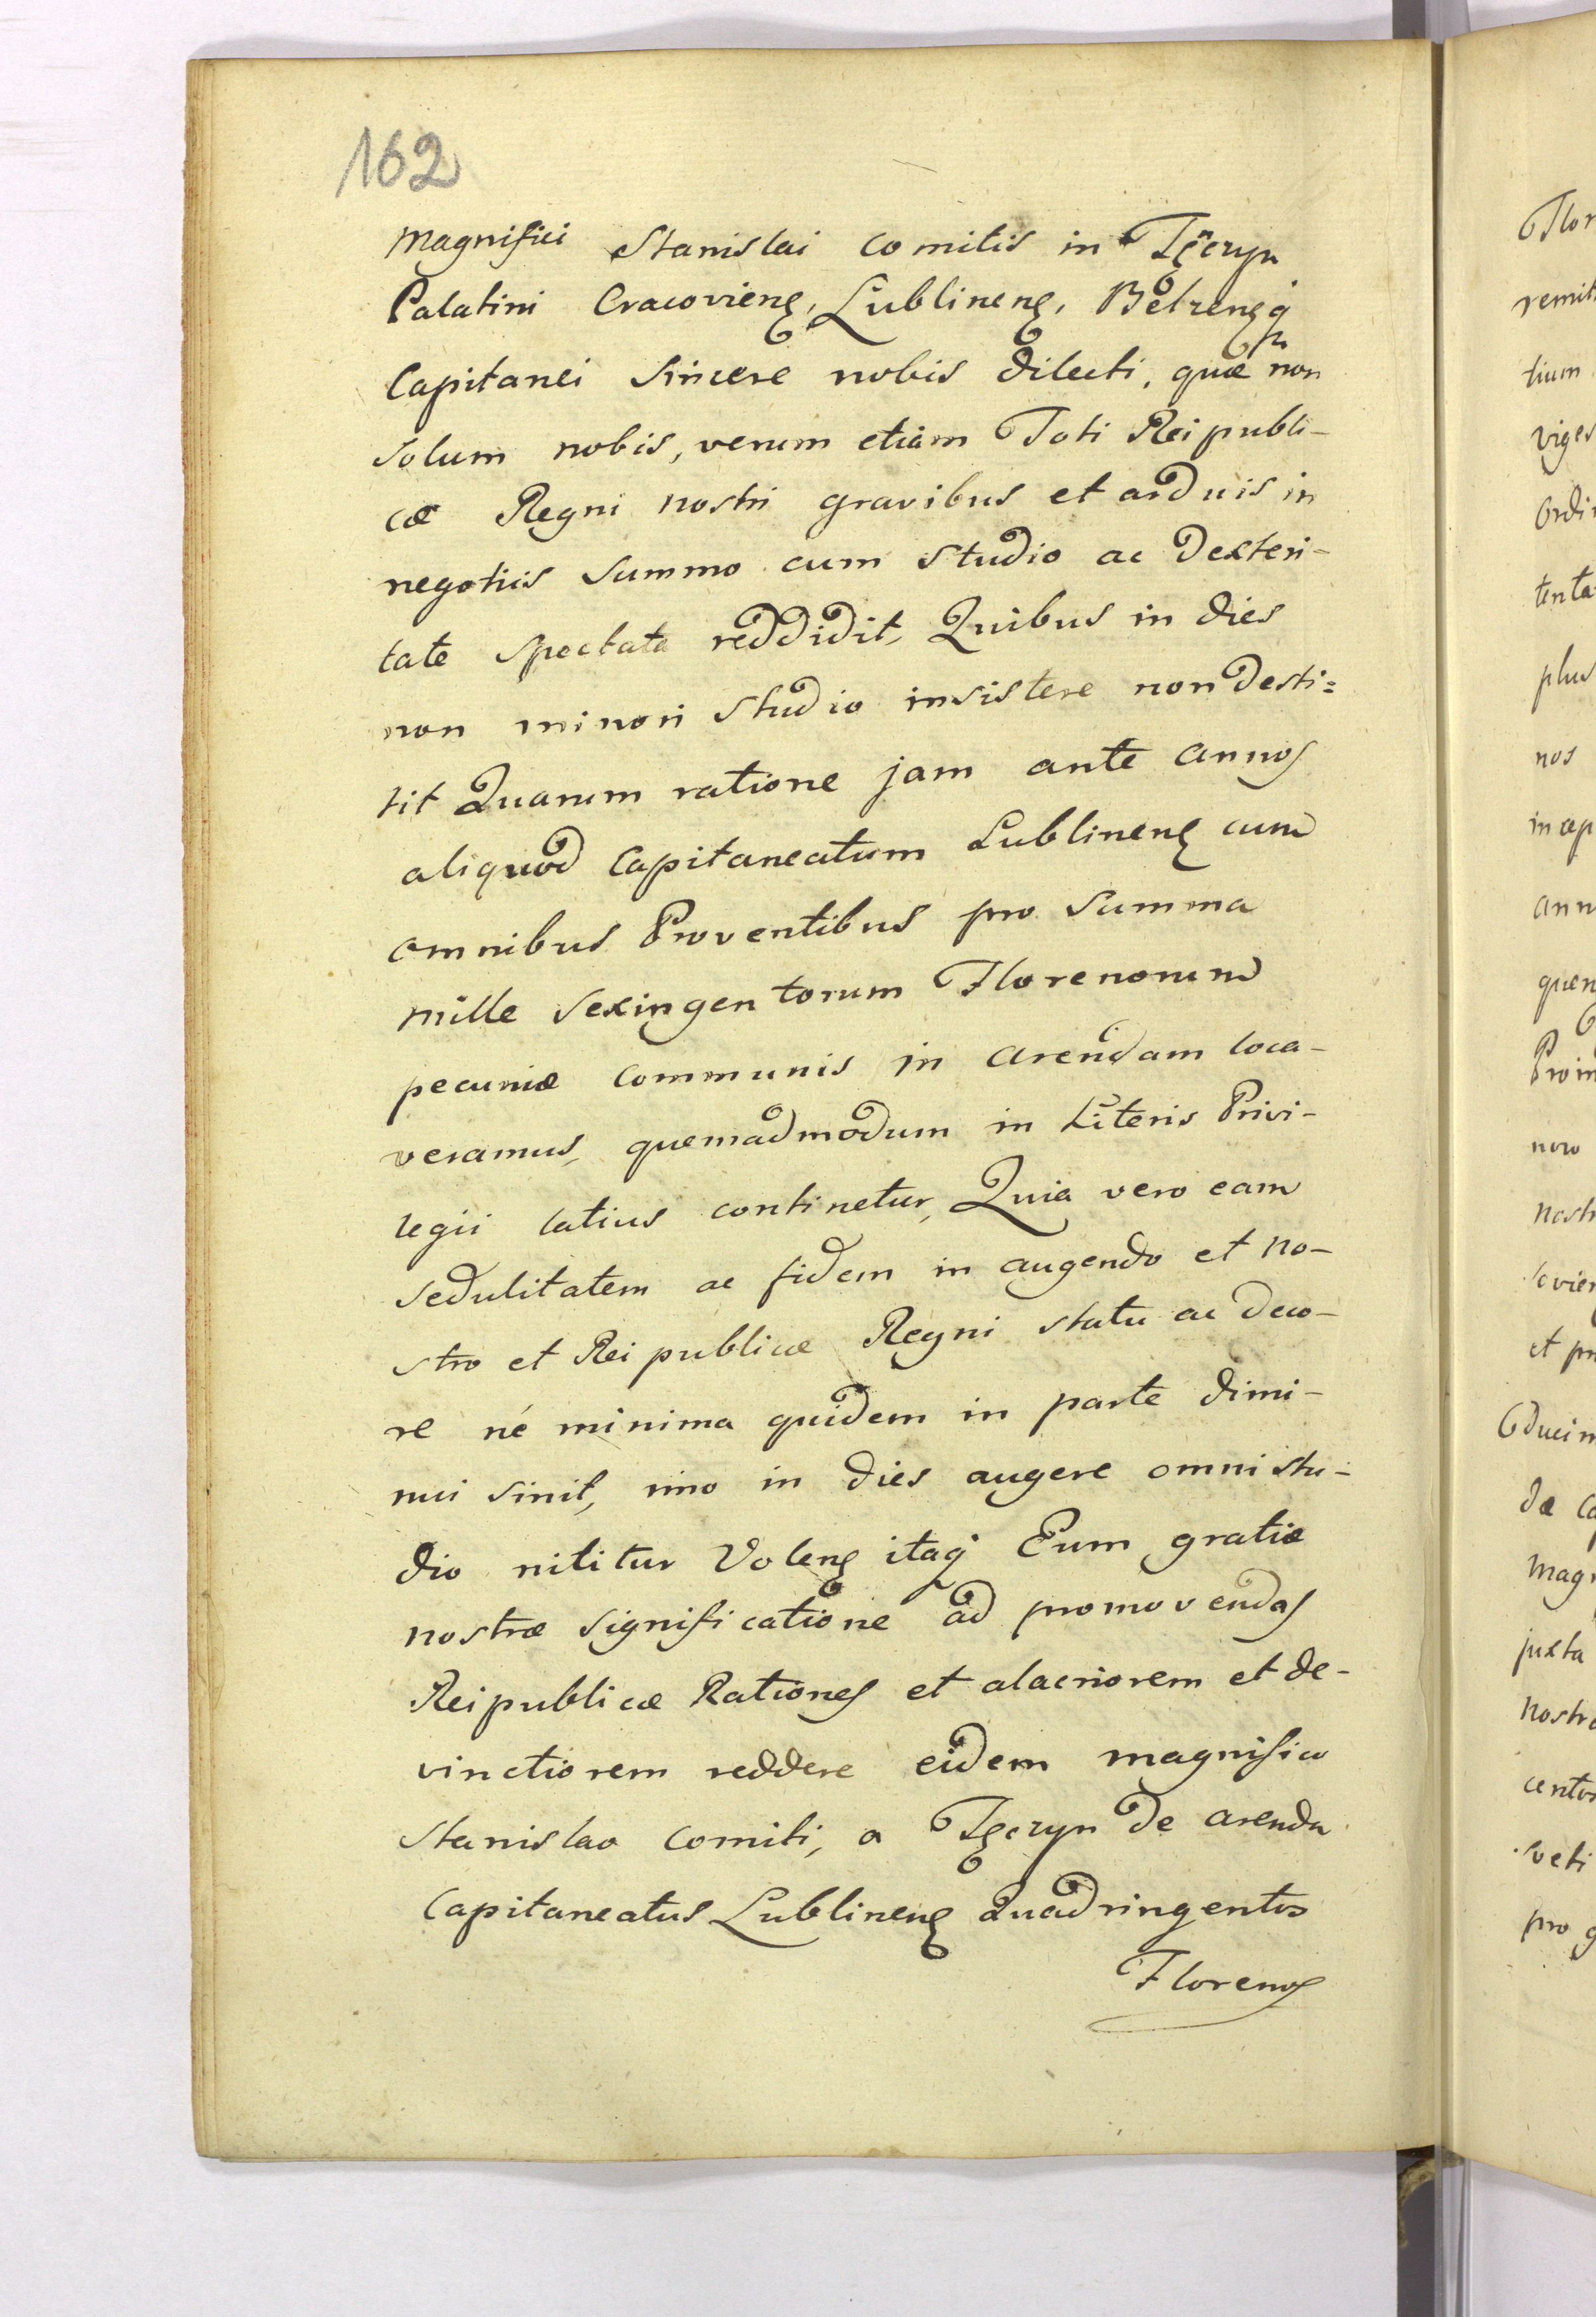 162
Magnifici Stanislai Comitis in Tęczyn
Palatini Cracovienȩ, Lublinenȩ, Belzenȩ q̇
Capitanei Sincere nobis dilecti, quæ non
solum nobis, verum etiam Toti Reipubli-
cæ Regni nostri gravibus et arduis in
negotiis summo cum studio ac Dexteri-
tate spectata reddidit, Quibus in dies
non minori studio insistere non desti=
tit Quarum ratione jam ante annos
aliquod Capitaneatum Lublinenȩ cum
omnibus Proventibus pro Summa
mille sexingentorum Florenorum
pecuniæ communis in arendam loca-
veramus, quemadmodum in Literis Privi-
legii latius continetur, Quia vero eam
sedulitatem ac fidem in augendo et no-
stro et Rei publicæ Regni statu ac deco-
re né minima quidem in parte dimi-
nui sinit, imo in dies augere omni stu-
dio nititur Volenȩ itaq̇ Eum gratiæ
nostræ significatione ad promovendas
Reipublicæ Rationes et alacriorem et de-
vinctiorem reddere eidem magnifico
Stanislao Comiti, a Tęczyn de arenda
Capitaneatus Lublinenȩ Quadringentos
Florenos
Flor
remit
tium
viges
Ordi
tenta
plus
nos
in cap
ann
quen
Proin
novo
nostr
covien
et pr
Educim
da Ca
Mag
juxta
nostr
centos
sveti
pro g